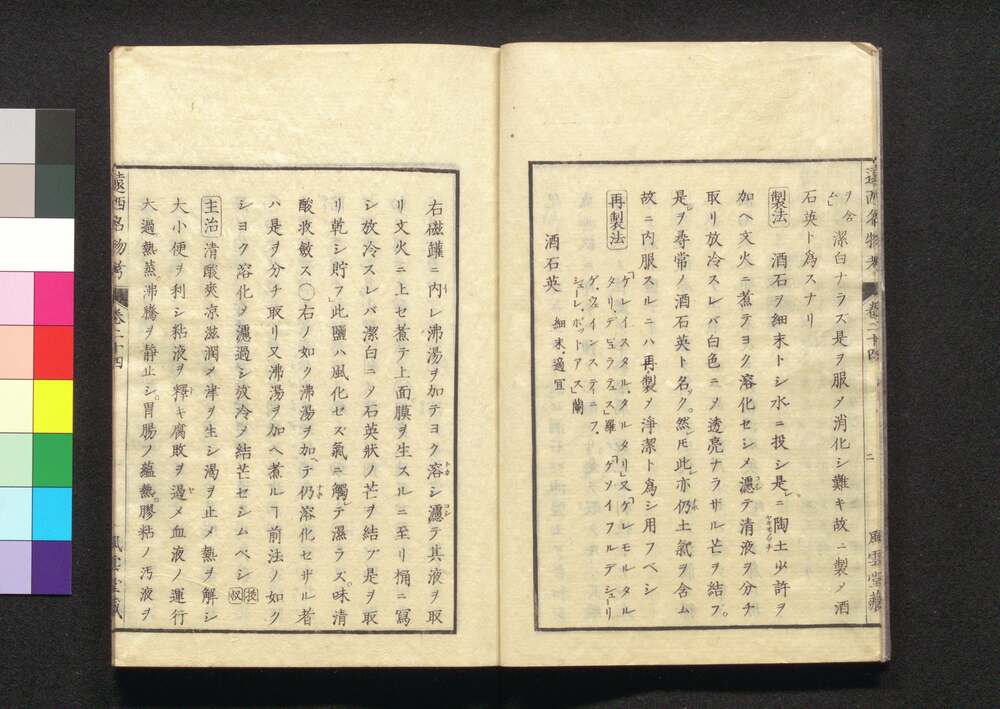 遠西名物考 卷二十四 二 風雲堂藏
ヲ含ム潔白ナラズ是ヲ服メ消化シ難キ故ニ製メ酒
石英ト爲スナリ
製法 酒石ヲ細末トシ水ニ投シ是ニ陶土少許ヲ
加ヘ文火ニ煮テヨク溶化セシメ濾テ清液ヲ分チ
取リ放冷スレバ白色ニメ透亮ナラザル芒ヲ結フ。
是ヲ尋常ノ酒石英ト名ク。然𪜈此亦仍土氣ヲ含ム
故ニ内服スルニハ再製メ淨潔ト爲シ用フベシ
再製法 「ゲレイスタル、タルタリ」又「ゲレモルタル
タリ、デピュラタス」羅「ゲソイフルデシューリ
ゲ、ウェインステイーフ、
シューレ、ポットアス」蘭
酒石英 細末、適宜
右磁罐ニ内レ沸湯ヲ加テヨク溶シ濾テ其液ヲ取
リ文火ニ上セ煮テ上面膜ヲ生スルニ至リ桶ニ寫
シ放冷スレバ潔白ニメ石英狀ノ芒ヲ結ブ是ヲ取
リ乾シ貯フ」此鹽ハ風化セズ氣ニ觸レテ濕ラズ。味清
酸收斂ス〇右ノ如ク沸湯ヲ加ヘテ仍溶化セザル者
ハ是ヲ分チ取リ又沸湯ヲ加ヘ煮ルヿ前法ノ如ク
シヨク溶化メ濾過シ放冷メ結芒セシムベシ
主治 清酸爽凉滋潤メ津ヲ生シ渴ヲ止メ熱ヲ解シ
大小便ヲ利シ粘液ヲ釋キ腐敗ヲ遏メ血液ノ運行
太過熱蒸、沸騰ヲ靜止シ。胃腸ノ蘊熱。膠粘ノ汚液ヲ
遠西名物考 卷二十四 風雲堂藏